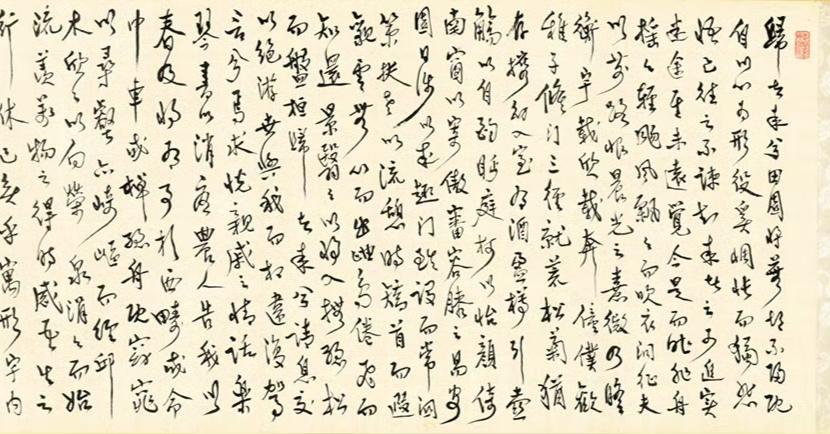 歸去來兮田園將蕪胡不歸既
自以心為形役奚惆悵而獨悲
悟已往之不諫知來者之可追實
迷途其未遠覺今是而昨非舟
搖々輕颺風飄々而吹衣問征夫
以前路恨晨光之熹微乃瞻
衡宇載欣載奔僮僕歡
稚子候門三徑就荒松菊猶
存攜幼入室有酒盈樽引壺
觴以自酌眄庭柯以怡顏倚
南窗以寄傲審容膝之易安
園日涉以成趣門雖設而常關
策扶老以流憩時矯首而遐
觀雲無心而出岫鳥倦飛而
知還景翳々以將入撫孤松
而盤桓歸去來兮請息交
以絕游世與我而相違復駕
言兮焉求悅親戚之情話樂
琴書以消憂農人告我以
春及將有事於西疇或命
巾車或棹孤舟既窈窕
以尋壑亦崎嶇而經邱
木欣々以向榮泉涓々而始
流羨萬物之得時感吾生之
行休已矣乎寓形宇內